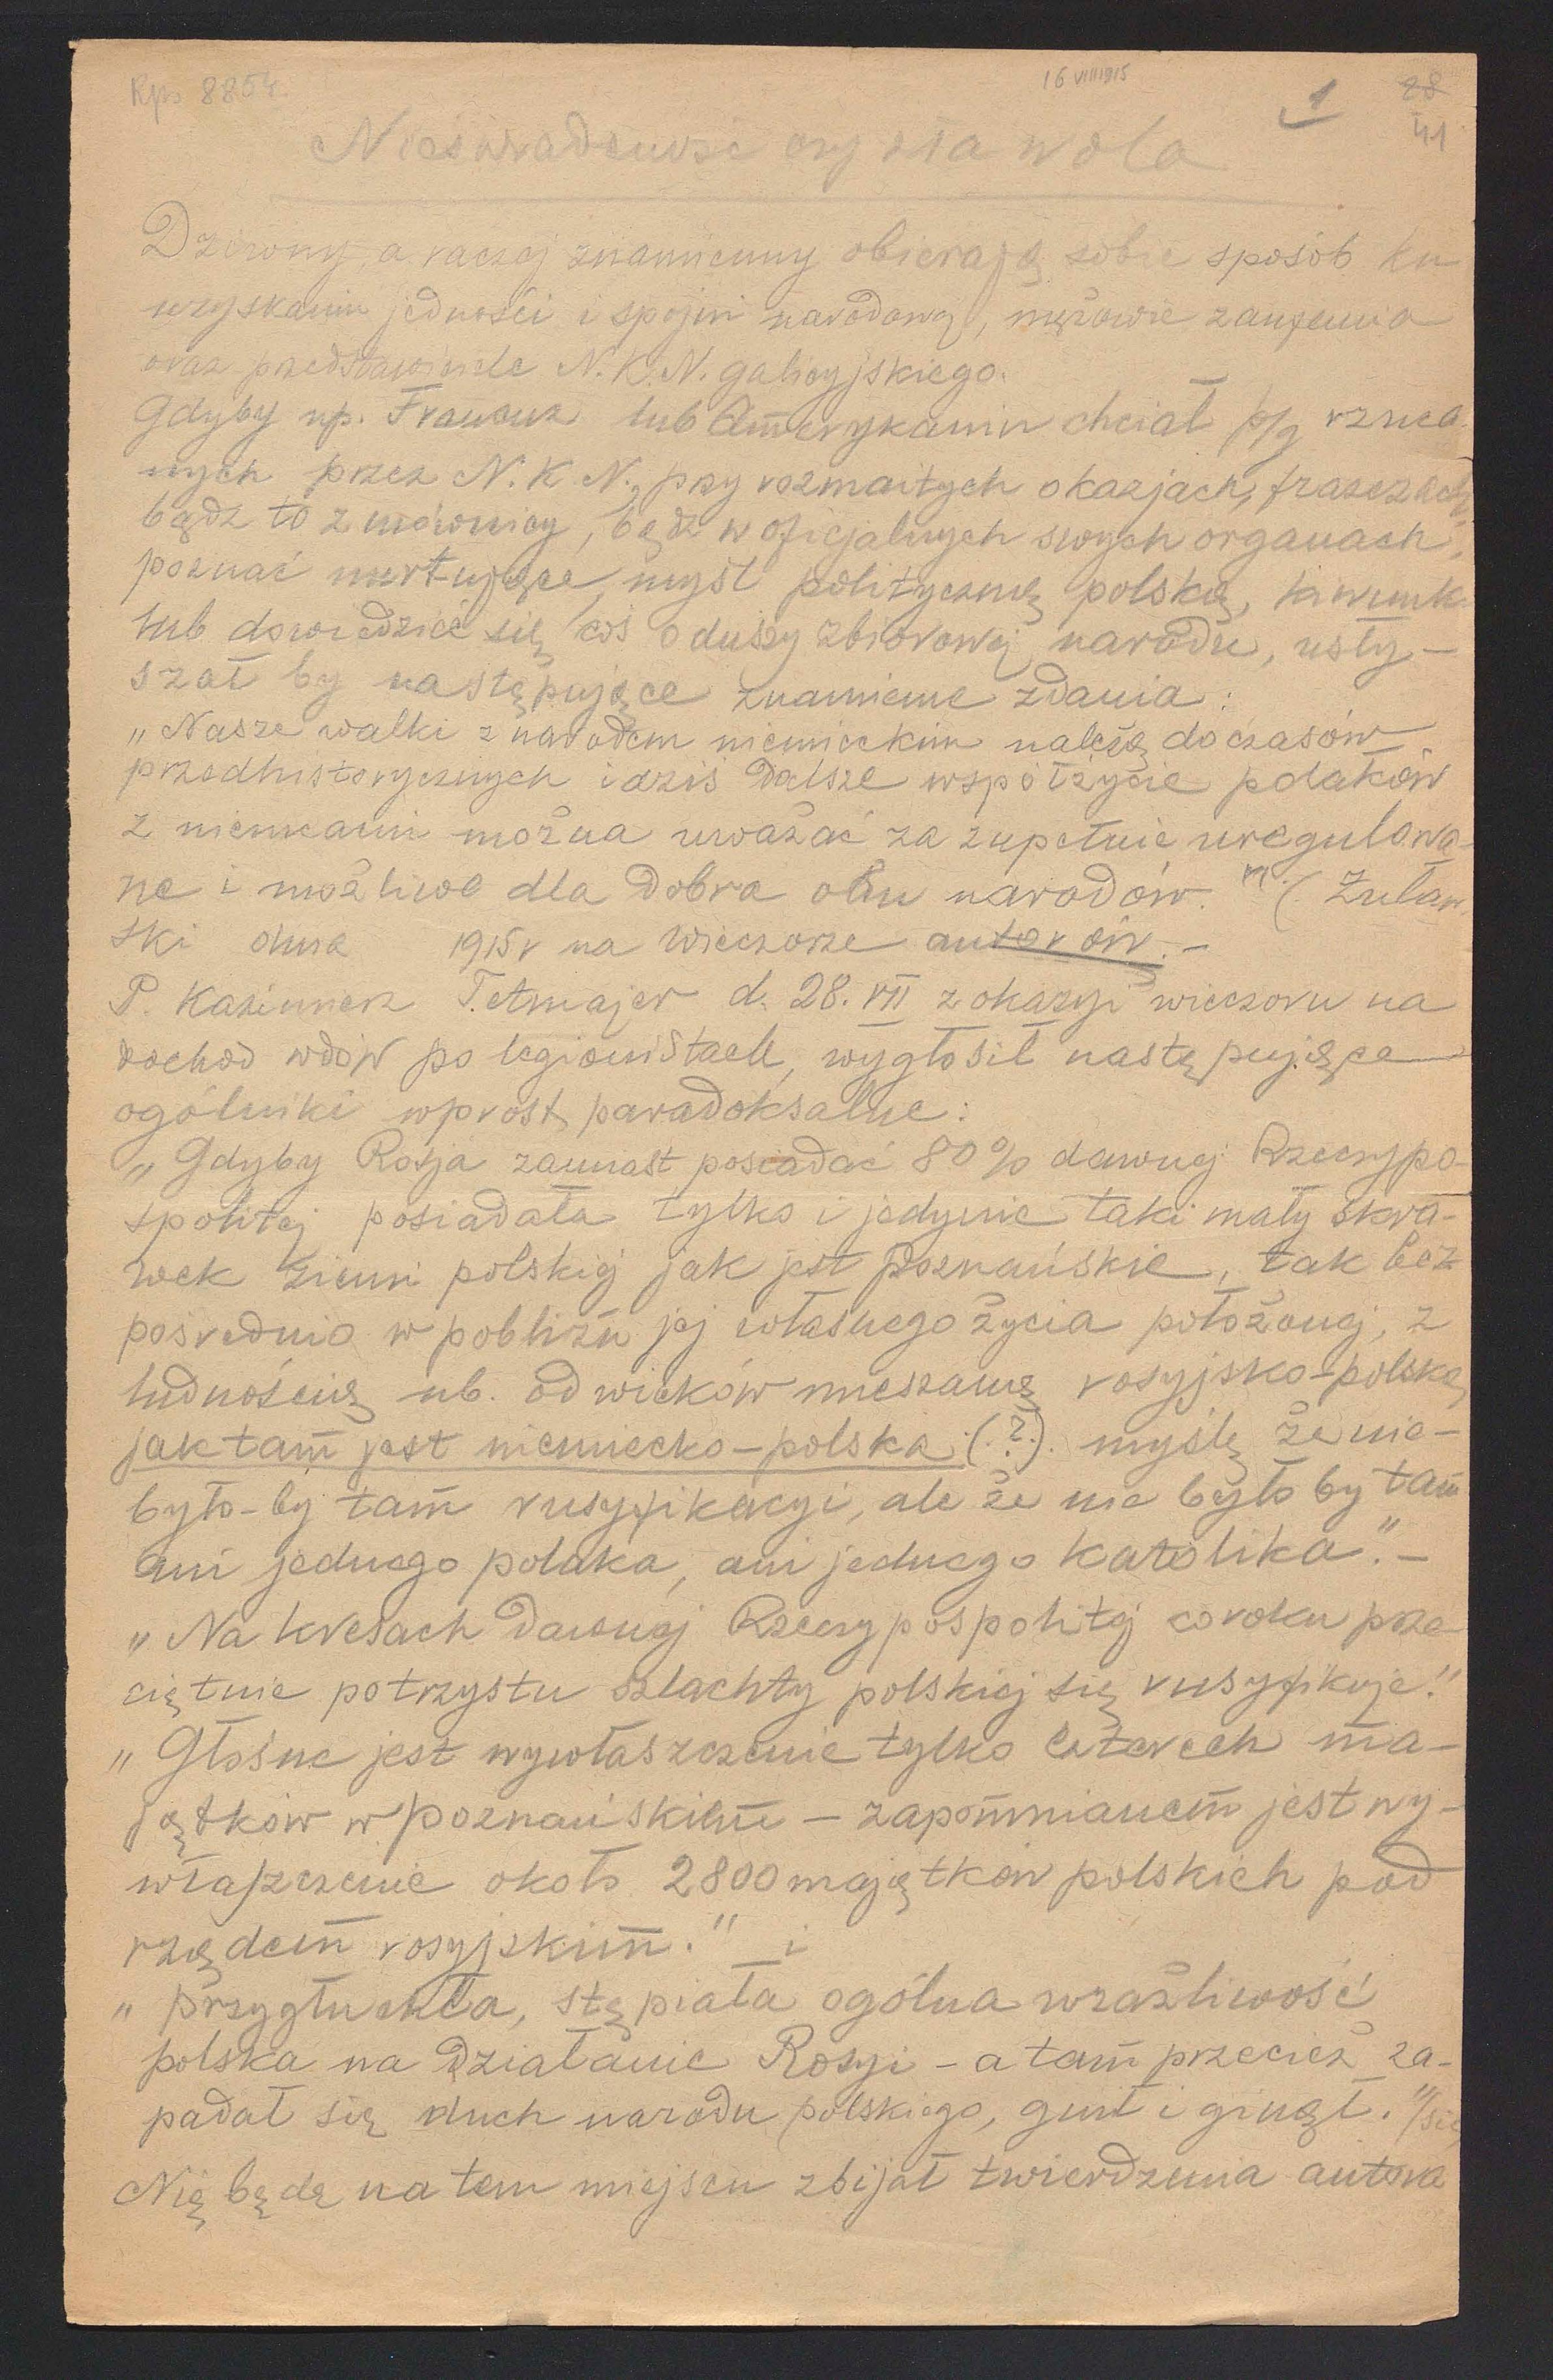 Rps 8854.
16 VIII 1915
1
28
41
Nieświadomość czy zła wola
Dziwny, a raczej znamienny obierają sobie sposób ku
uzyskaniu jedności i spójni narodowej, mężowie zaufania
oraz przedstawiciele N.K.N. galicyjskiego.
Gdyby np. Francuz lub Amerykanin chciał p/g rzuca-
nych przez N.K.N., przy rozmaitych okazjach, frazesach
bądź to z mównicy, bądź w oficjalnych swych organach,
poznać nurtujące, myśl polityczną polską, kierunk.
lub dowiedzieć się coś o duszy zbiorowej narodu, usły-
szał by następujące znamienne zdania:
„Nasze walki z narodem niemieckim należą do czasów
przedhistorycznych i dziś dalsze współżycie polaków
z niemcami można uważać za zupełnie uregulowa-
ne i możliwe dla dobra obu narodów." (Żuław-
ski dnia 1915 r na wieczorze autorów. -
P. Kazimierz Tetmajer d. 28. VII z okazyi wieczoru na
dochod wdów po legionistach, wygłosił następujące
ogólniki wprost paradoksalne:
„Gdyby Rosja zamiast posiadać 80% dawnej Rzeczypo-
spolitej posiadała tylko i jedynie taki mały skra-
wek ziemi polskiej jak jest Poznańskie, tak bez
pośrednio w pobliżu jej własnego życia położonej, z
ludnością nb. od wieków mieszaną rosyjsko-polską
jak tam jest niemiecko-polska (.?.). myślę że nie-
było-by tam rusyfikacyi, ale że nie było by tam
ani jednego polaka, ani jednego katolika". -
„Na kresach dawnej Rzeczypospolitej co roku prze
ciętnie potrzystu szlachty polskiej się rusyfikuje."
„Głośne jest wywłaszczenie tylko czterech ma-
jątków w Poznańskiem - zapomnianem jest wy-
właszczenie około 2800 majątków polskich pod
rządem rosyjskim." i
„przygłuchła, stępiała ogólna wrażliwość
polska na działanie Rosyi - a tam przecież za-
padał się duch narodu polskiego, gnił i ginął." /sic
Nie będę na tem miejscu zbijał twierdzenia autora